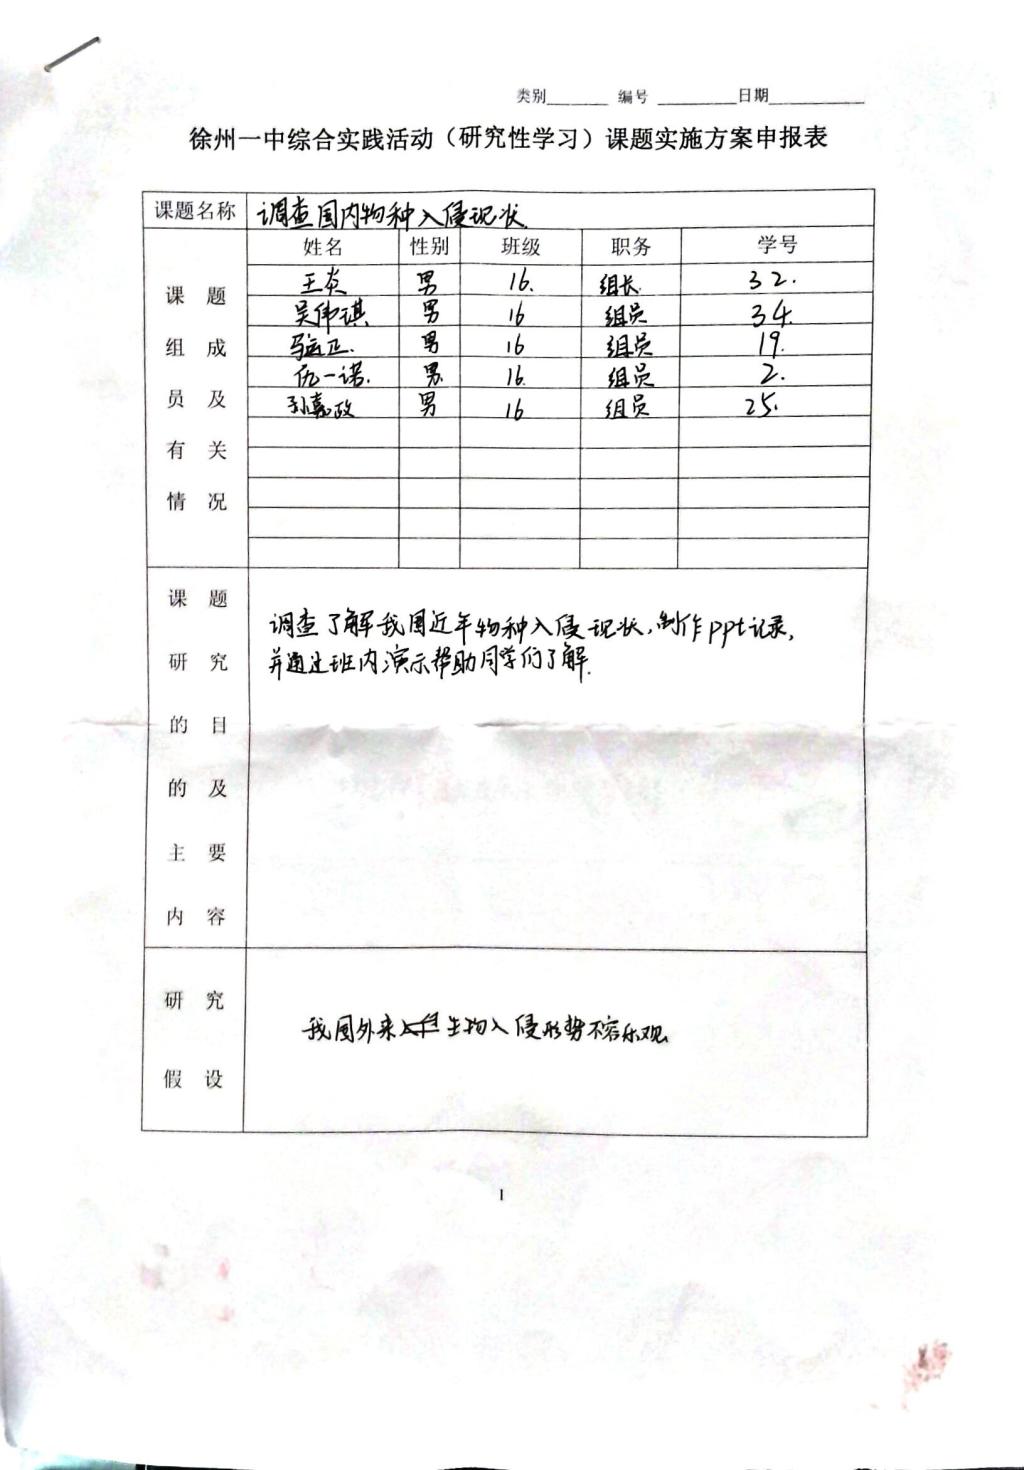 类别______ 编号 ________日期_________
徐州一中综合实践活动（研究性学习）课题实施方案申报表
课题名称 调查国内物种入侵现状
课题组成员及有关情况
姓名 性别 班级 职务 学号
王炎 男 16. 组长 32.
吴伟祺 男 16 组员 34.
骆运正. 男 16 组员 19.
仇一诺. 男. 16. 组员 2.
孙嘉政 男 16 组员 25.
课题研究的目的及主要内容
调查了解我国近年物种入侵现状,制作ppt记录,
并通过班内演示帮助同学们了解.
研究假设
我国外来生物入侵形势不容乐观
1